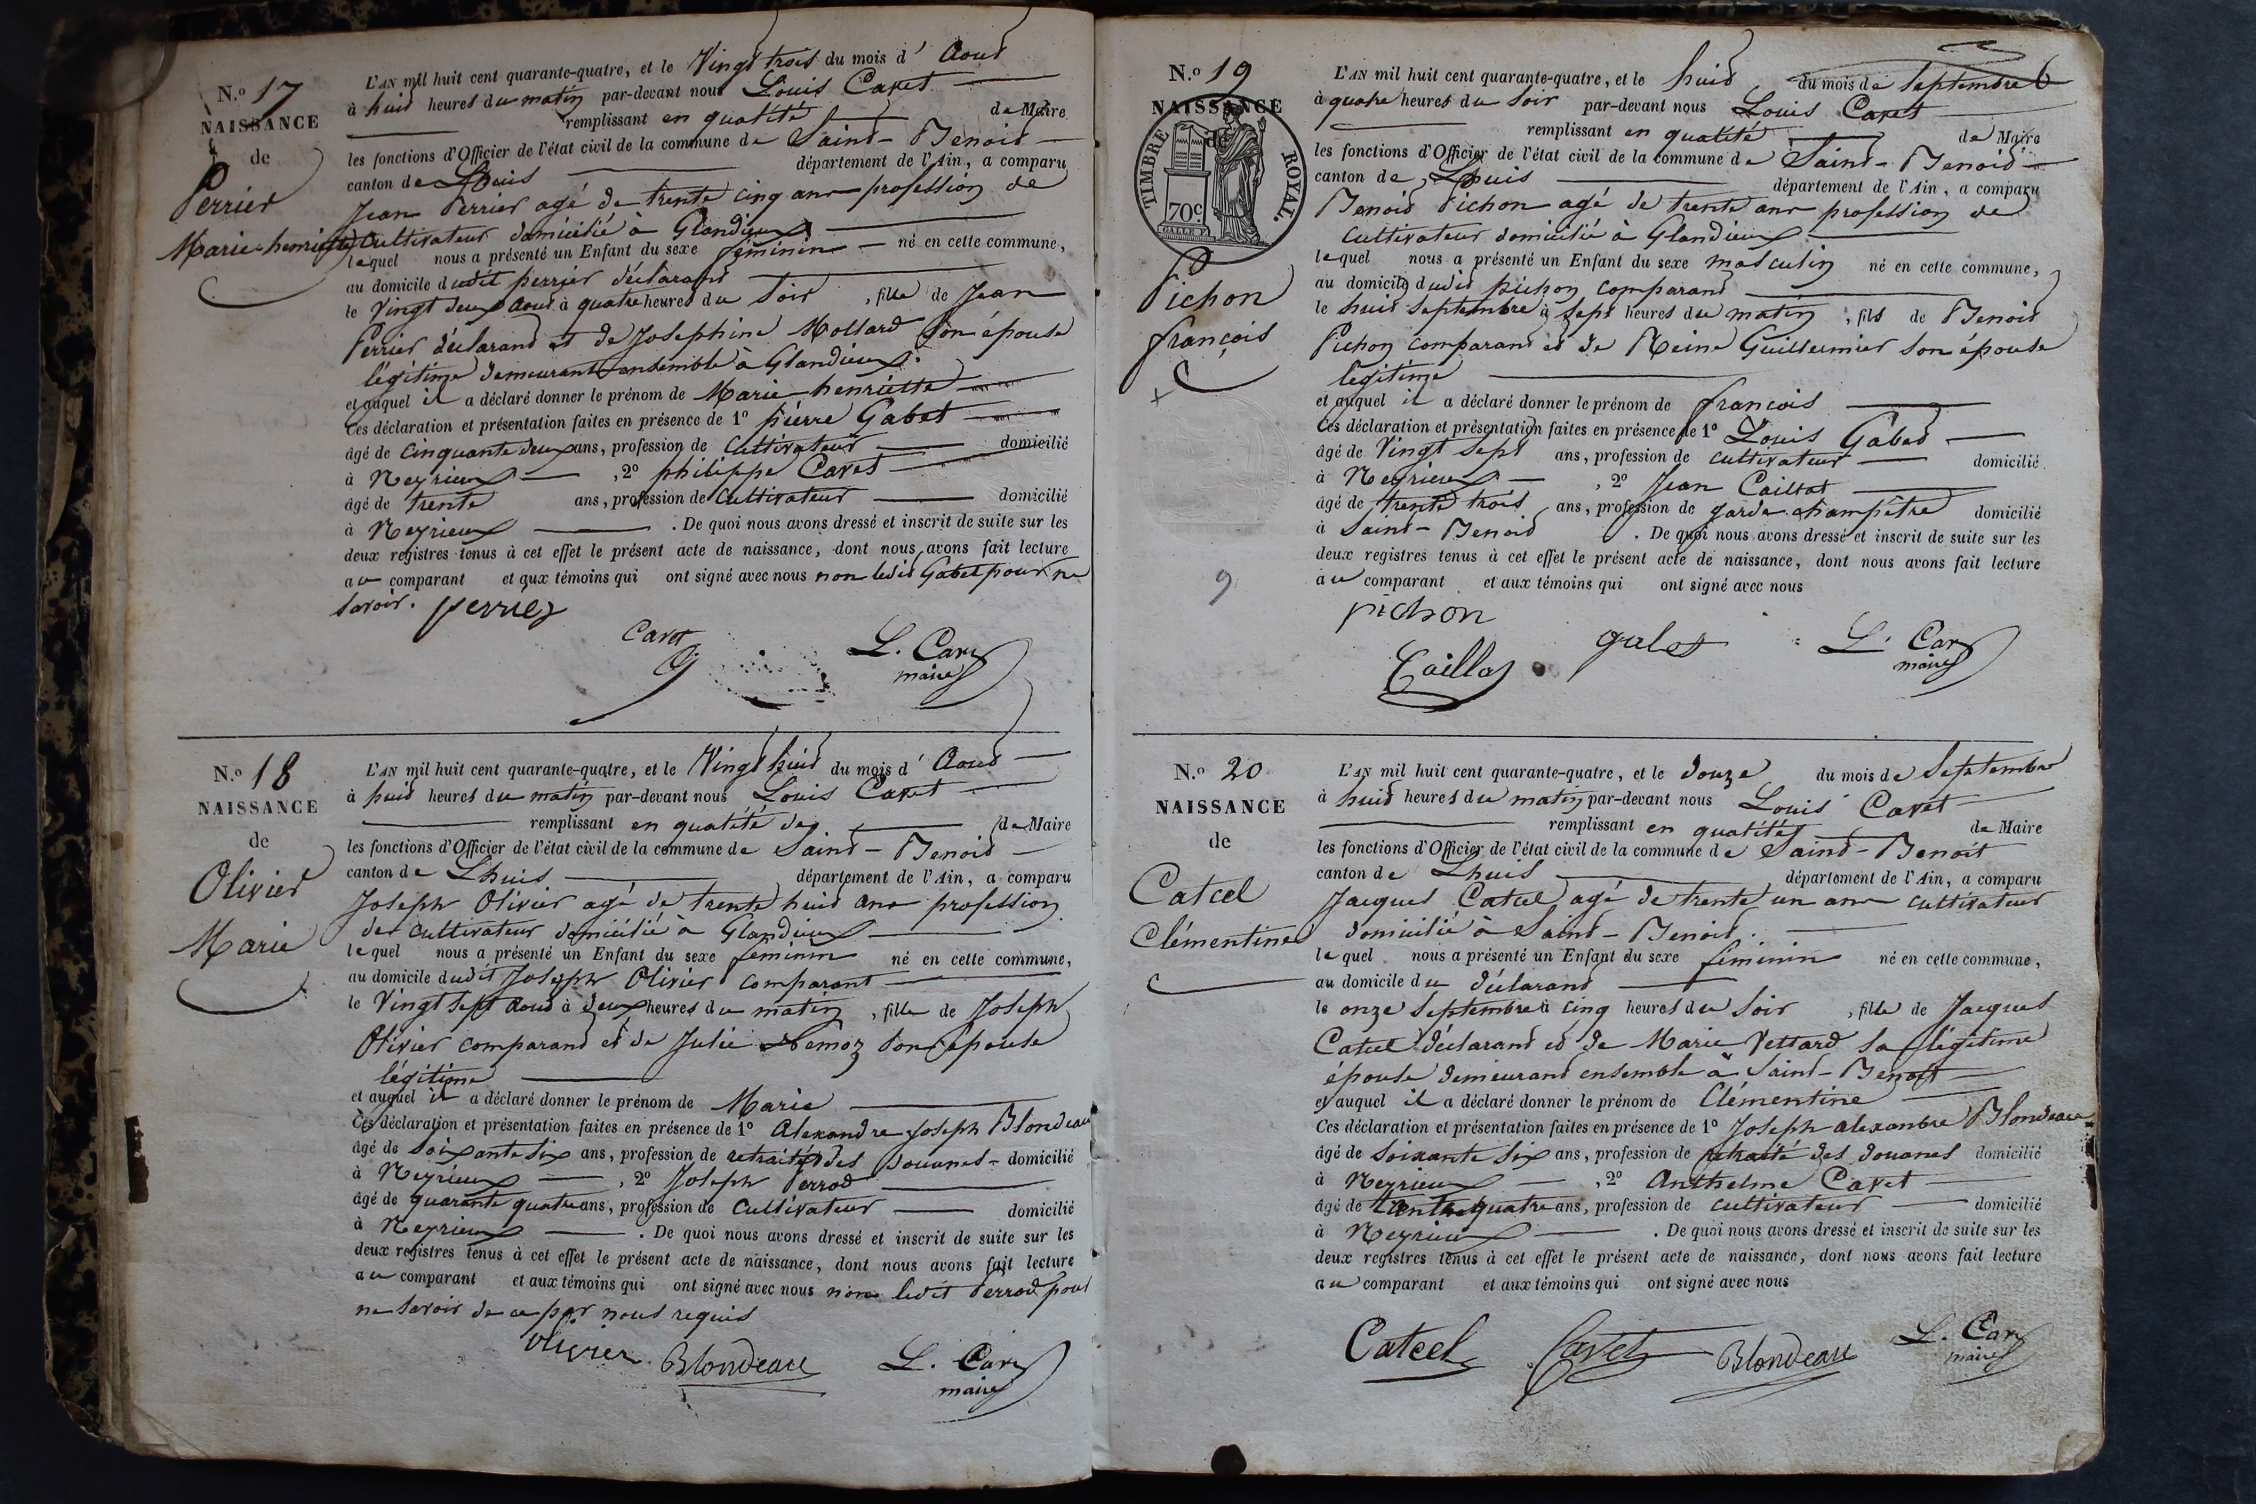 N.o 17
NAISSANCE
de
Perrier
Marie-henriette
L'AN mil huit cent quarante-quatre, et le Vingt trois du mois d' Aout
à huit heures du matin par-devant nous Louis Cavet
remplissant en qualité de Maire
les fonctions d'Officier de l'état civil de la commune de Saint-Benoit
canton de Lhuis département de l'Ain, a comparu
Jean Perrier agé de trente cinq ans profession de
Cultivateur domicilié à Glandieux
lequel nous a présenté un Enfant du sexe féminin né en cette commune,
au domicile dudit perrier déclarant
le Vingt deux Aout à quatre heures du Soir , fille de Jean
Perrier déclarant et de Josephine Mollard son épouse
légitime demeurant ensemble à Glandieux.
et auquel il a déclaré donner le prénom de Marie henriette
Ces déclaration et présentation faites en présence de 1o pierre Gabet
âgé de cinquante deux ans, profession de Cultivateur domicilié
à Neyrieux , 2o philippe Cavet
âgé de trente ans, profession de Cultivateur domicilié
à Neyrieux . De quoi nous avons dressé et inscrit de suite sur les
deux registres tenus à cet effet le présent acte de naissance, dont nous avons fait lecture
au comparant et aux témoins qui ont signé avec nous non ledit Gabet pour ne
savoir. perrier
Cavet
L. Cavet
maire
N.o 18
NAISSANCE
de
Olivier
Marie
L'AN mil huit cent quarante-quatre, et le Vingt huit du mois d' Aout
à huit heures du matin par-devant nous Louis Cavet
remplissant en qualité de de Maire
les fonctions d'Officier de l'état civil de la commune de Saint-Benoit
canton de Lhuis département de l'Ain, a comparu
Joseph Olivier agé de trente huit ans profession
de cultivateur domicilié à Glandieux
lequel nous a présenté un Enfant du sexe féminin né en cette commune,
au domicile dudit Joseph Olivier comparant
le Vingt sept Aout à deux heures du matin , fille de Joseph
Olivier comparant et de Julie Demoz son épouse
légitime
et auquel il a déclaré donner le prénom de Marie
Ces déclaration et présentation faites en présence de 1o Alexandre Joseph Blondeau
âgé de soixante six ans, profession de retraité des Douanes domicilié
à Neyrieux , 2o Joseph Perrod
âgé de quarante quatre ans, profession de Cultivateur domicilié
à Neyrieux . De quoi nous avons dressé et inscrit de suite sur les
deux registres tenus à cet effet le présent acte de naissance, dont nous avons fait lecture
au comparant et aux témoins qui ont signé avec nous non ledit Perrod pour
ne savoir de ce par nous requis
Olivier Blondeau L. Cavet
maire
N.o 19
NAISSANCE
de
TIMBRE ROYAL.
70c.
Pichon
françois
9
L'AN mil huit cent quarante-quatre, et le huit du mois de Septembre
à quatre heures du Soir par-devant nous Louis Cavet
remplissant en qualité de Maire
les fonctions d'Officier de l'état civil de la commune de Saint-Benoit
canton de Lhuis département de l'Ain, a comparu
Benoit Pichon agé de trente ans profession de
Cultivateur domicilié à Glandieux
lequel nous a présenté un Enfant du sexe masculin né en cette commune,
au domicile dudit pichon comparant
le huit Septembre à Sept heures du matin , fils de Benoit
Pichon comparant et de Reine Guillermier son épouse
légitime
et auquel il a déclaré donner le prénom de françois
Ces déclaration et présentation faites en présence de 1o Louis Gabet
âgé de Vingt Sept ans, profession de cultivateur domicilié
à Neyrieux , 2o Jean Caillat
âgé de trente trois ans, profession de garde champêtre domicilié
à Saint-Benoit . De quoi nous avons dressé et inscrit de suite sur les
deux registres tenus à cet effet le présent acte de naissance, dont nous avons fait lecture
au comparant et aux témoins qui ont signé avec nous
pichon
Caillat gabet L. Cavet
maire
N.o 20
NAISSANCE
de
Catcel
Clémentine
L'AN mil huit cent quarante-quatre, et le Douze du mois de Septembre
à huit heures du matin par-devant nous Louis Cavet
remplissant en qualité de Maire
les fonctions d'Officier de l'état civil de la commune de Saint-Benoit
canton de Lhuis département de l'Ain, a comparu
Jacques Catcel agé de trente un ans cultivateur
domicilié à Saint-Benoit.
lequel nous a présenté un Enfant du sexe féminin né en cette commune,
au domicile du déclarant
le onze Septembre à cinq heures du Soir , fille de Jacques
Catcel déclarant et de Marie Vettard sa légitime
épouse demeurant ensemble à Saint-Benoit
et auquel il a déclaré donner le prénom de Clémentine
Ces déclaration et présentation faites en présence de 1o Joseph alexandre Blondeau
âgé de soixante six ans, profession de retraité des douanes domicilié
à Neyrieux , 2o Anthelme Cavet
âgé de trente quatre ans, profession de cultivateur domicilié
à Neyrieux . De quoi nous avons dressé et inscrit de suite sur les
deux registres tenus à cet effet le présent acte de naissance, dont nous avons fait lecture
au comparant et aux témoins qui ont signé avec nous
Catcel Cavet Blondeau L. Cavet
maire